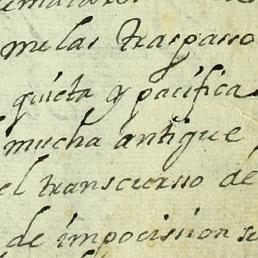 me las traspasso
quieta y pacifica
mucha antigue
el transcursso de
de impocission se